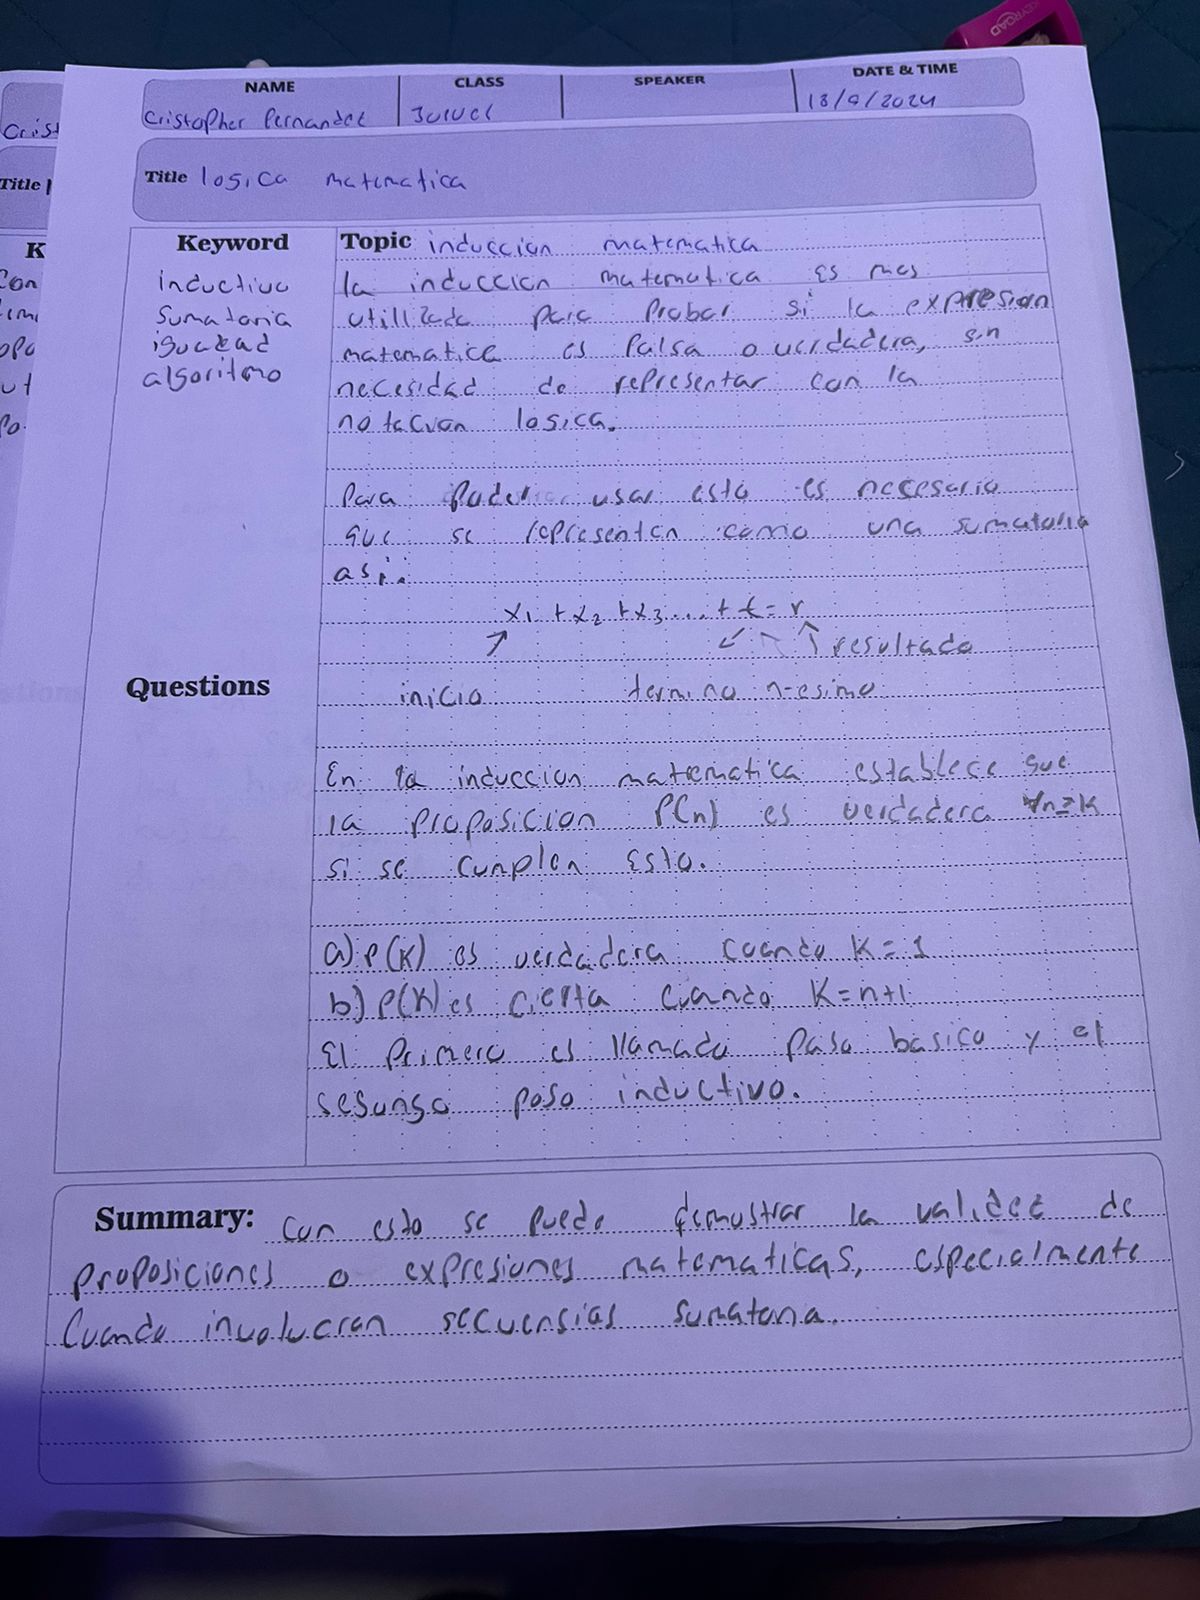 KEYROAD
NAME
CLASS
SPEAKER
DATE & TIME
Cristopher Fernandez
18/9/2024
Title logica matematica
Keyword
inductivo
Sumatoria
igualdad
algoritmo
Topic induccion matematica
la induccion matematica es mas
utilizada para probar si la expresion
matematica es falsa o verdadera, sin
necesidad de representar con la
notacion logica.
Para poder usar esto es necesario
que se representen como una sumatoria
asi:
x1 + x2 + x3 .... + t = r
resultado
inicio termino n-esimo
Questions
En la induccion matematica establece que
la proposicion P(n) es verdadera ∀n≥k
si se cumplen esto.
a) P(K) es verdadera cuando K = 1
b) P(K) es cierta cuando K = n+1
El primero es llamado paso basico y el
segungo paso inductivo.
Summary: Con esto se puede demostrar la validez de
proposiciones o expresiones matematicas, especialmente
Cuando involucran secuensias sumatoria.
Crist
Title
K
Con